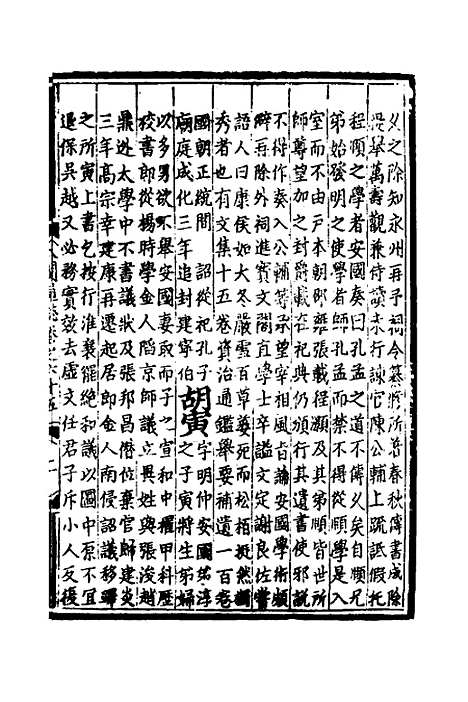 久之除知永州再予祠令纂所著春秋傳書成除
提舉萬壽觀兼侍讀未行諫官陳公輔上疏詆假托
程頤之學者安國奏曰孔孟之道不傳久矣自頤兄
弟始發明之使學者師孔孟而禁不得從頤學是入
室而不由戶本朝邵雍張載程顥及其弟頤皆世所
師尊望加之封爵載在祀典仍頒行其遺書使邪說
不得作奏入公輔等承望宰相風旨論安國學術頗
僻再除外祠進寶文閣直學士卒謚文定謝良佐嘗
語人曰康侯如大冬嚴雪百草萎死而松栢挺然獨
秀者也有文集十五卷資治通鑑舉要補遺一百卷
國朝正統間 詔從祀孔子
廟庭成化三年追封建寧伯
胡寅
字明仲安國弟淳
之子寅將生弟婦
以多男欲不舉安國妻取而子之宣和中擢甲科歷
校書郎從楊時學金人陷京師議立異姓與張浚趙
鼎逃太學中不書議狀及張邦昌僭位棄官歸建炎
三年高宗幸建康再遷起居郎金人南侵詔議移蹕
之所寅上書乞按行淮襄罷絶和議以圖中原不宜
退保吳越又必務實效去虛文任君子斥小人反復